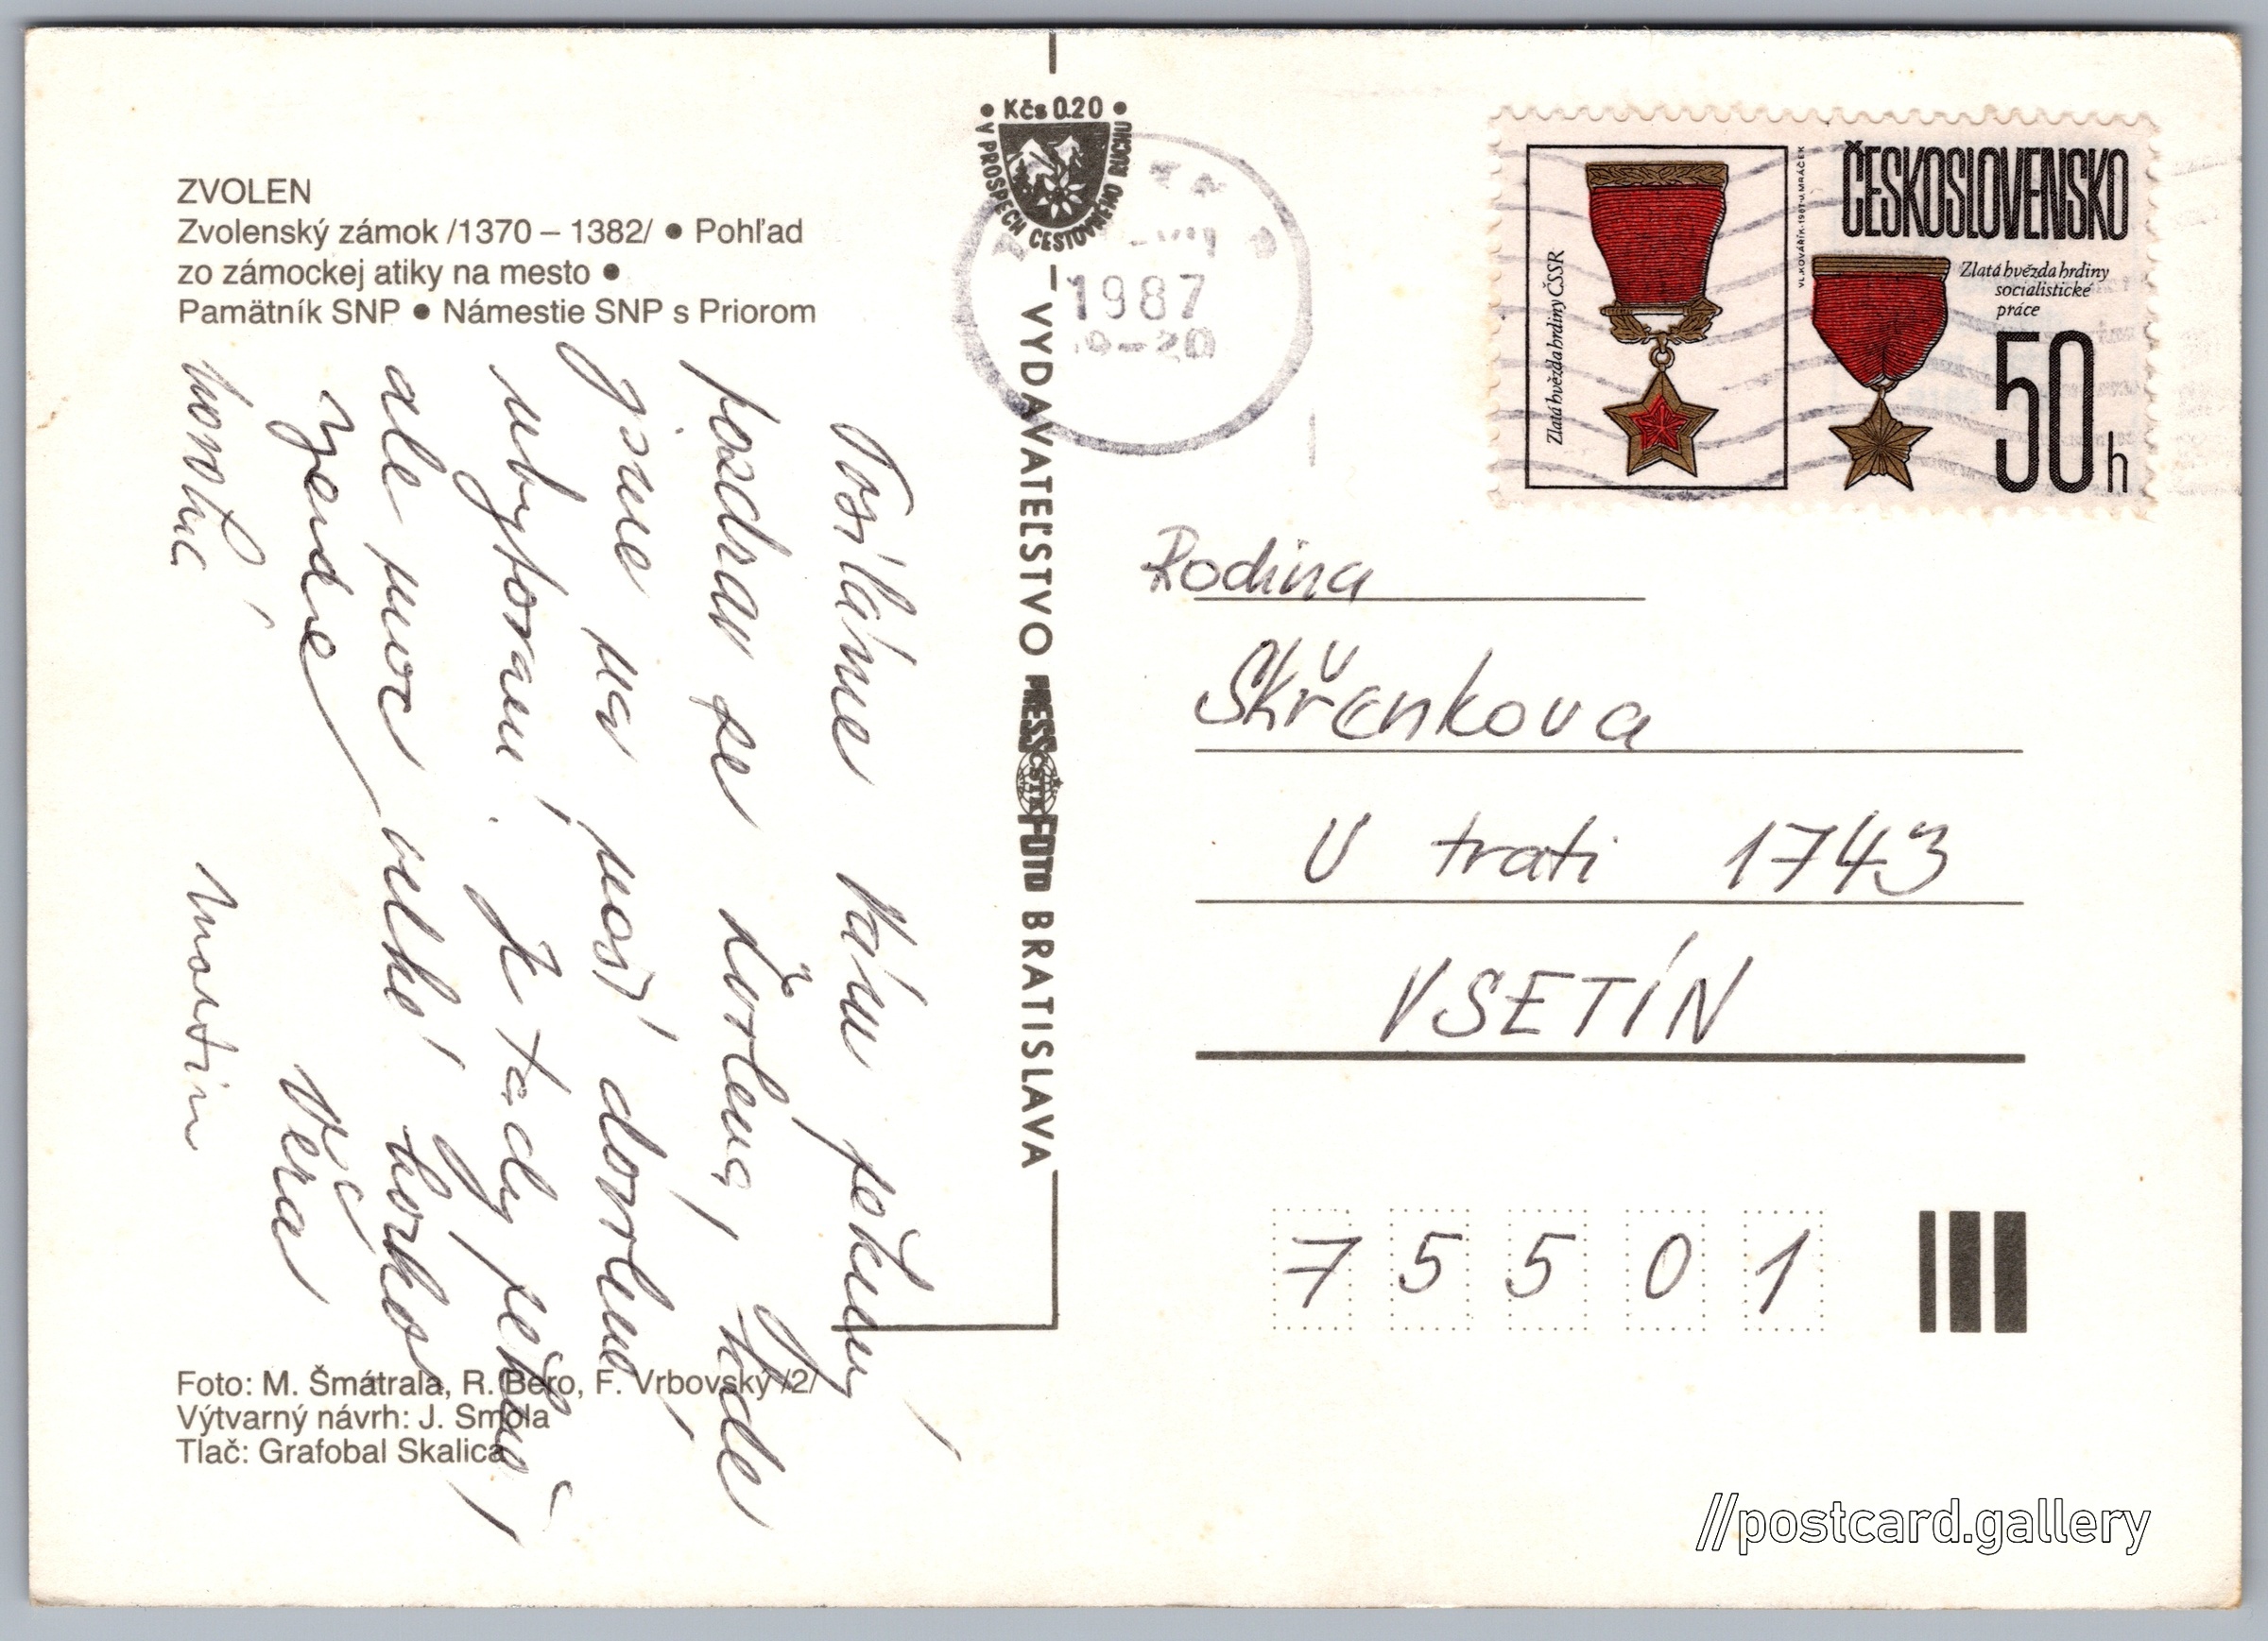 ZVOLEN
Zvolenský zámok /1370 – 1382/ ● Pohľad
zo zámockej atiky na mesto ●
Pamätník SNP ● Námestie SNP s Priorom
Posíláme Vám pěkný
pozdrav ze Zvolena, kde
jsme na
ubytováni. Je tady pěkně,
ale moc velké horko.
Zdeně
Věra
Martin
Foto: M. Šmátrala, R. Bero, F. Vrbovský /2/
Výtvarný návrh: J. Smola
Tlač: Grafobal Skalica
• Kčs 0.20 •
V PROSPECH CESTOVNÉHO RUCHU
VYDAVATEĽSTVO PRESSFOTO BRATISLAVA
ČSTK
1987
-20
ČESKOSLOVENSKO
Zlatá hvězda hrdiny ČSSR
VL.KOVÁŘÍK·1987·M.MRÁČEK
Zlatá hvězda hrdiny
socialistické
práce
50 h
Rodina
Skřenkova
U trati 1743
VSETÍN
7 5 5 0 1
//postcard.gallery